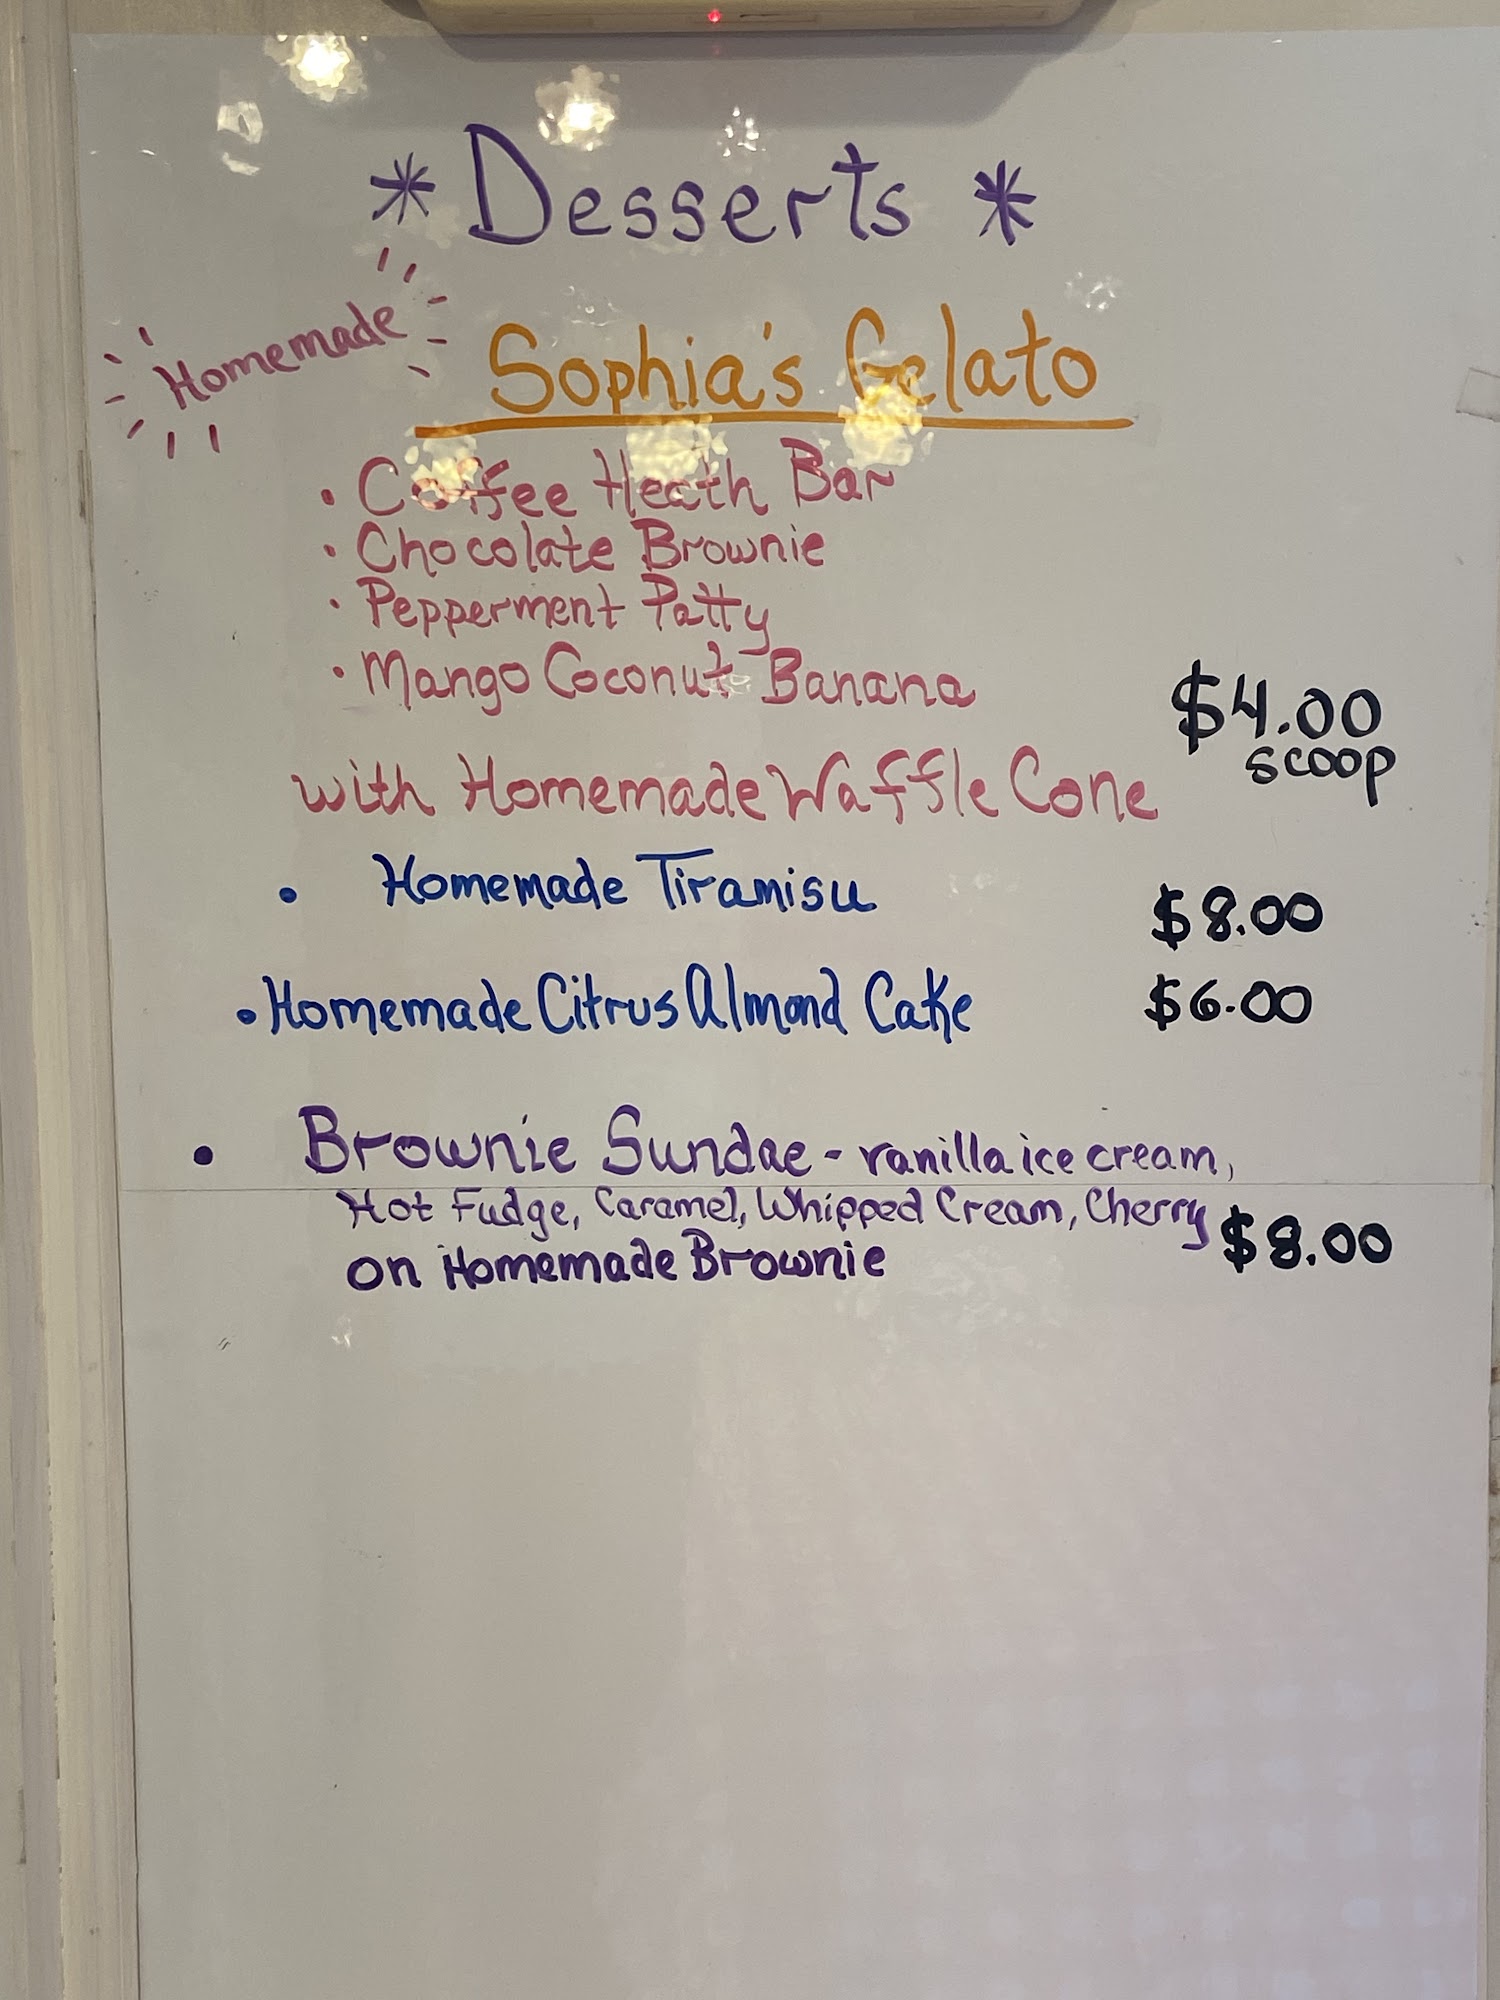 * Desserts *
Homemade
Sophia's Gelato
• Coffee Heath Bar
• Chocolate Brownie
• Pepperment Patty
• Mango Coconut Banana
$4.00
scoop
with Homemade Waffle Cone
• Homemade Tiramisu $8.00
• Homemade Citrus Almond Cake $6.00
• Brownie Sundae - vanilla ice cream,
Hot Fudge, Caramel, Whipped Cream, Cherry $8.00
on Homemade Brownie